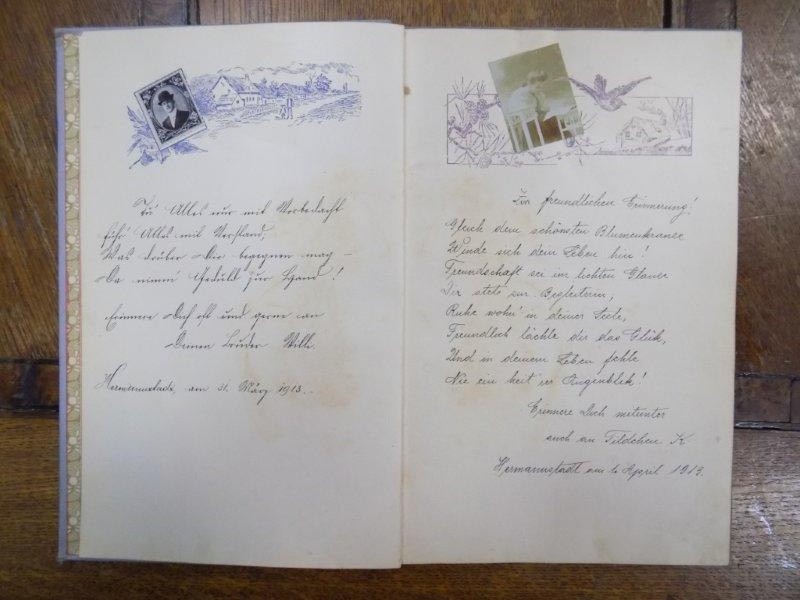 Tu' Alles nur mit Vorbedacht
führ' Alles mit Verstand,
Was drüber Dir begegnen mag –
Da nimm' Geduld zur Hand!
Erinnere Dich oft und gerne an
Deinen Bruder Willi.
Hermannstadt, am 31. März 1913.–
Zur freundlichen Erinnerung!
Gleich dem schönsten Blumenkranze
Winde sich dein Leben hin!
Freundschaft sei im lichten Glanze
Dir stets zur Begleiterin,
Ruhe wohn' in deiner Seele,
Freundlich lächle dir das Glük,
Und in deinem Leben fehle
Nie ein heit'rer Augenblik!
Erinnere Dich mitunter
auch an Tildchen K
Hermannstadt am April 1913.